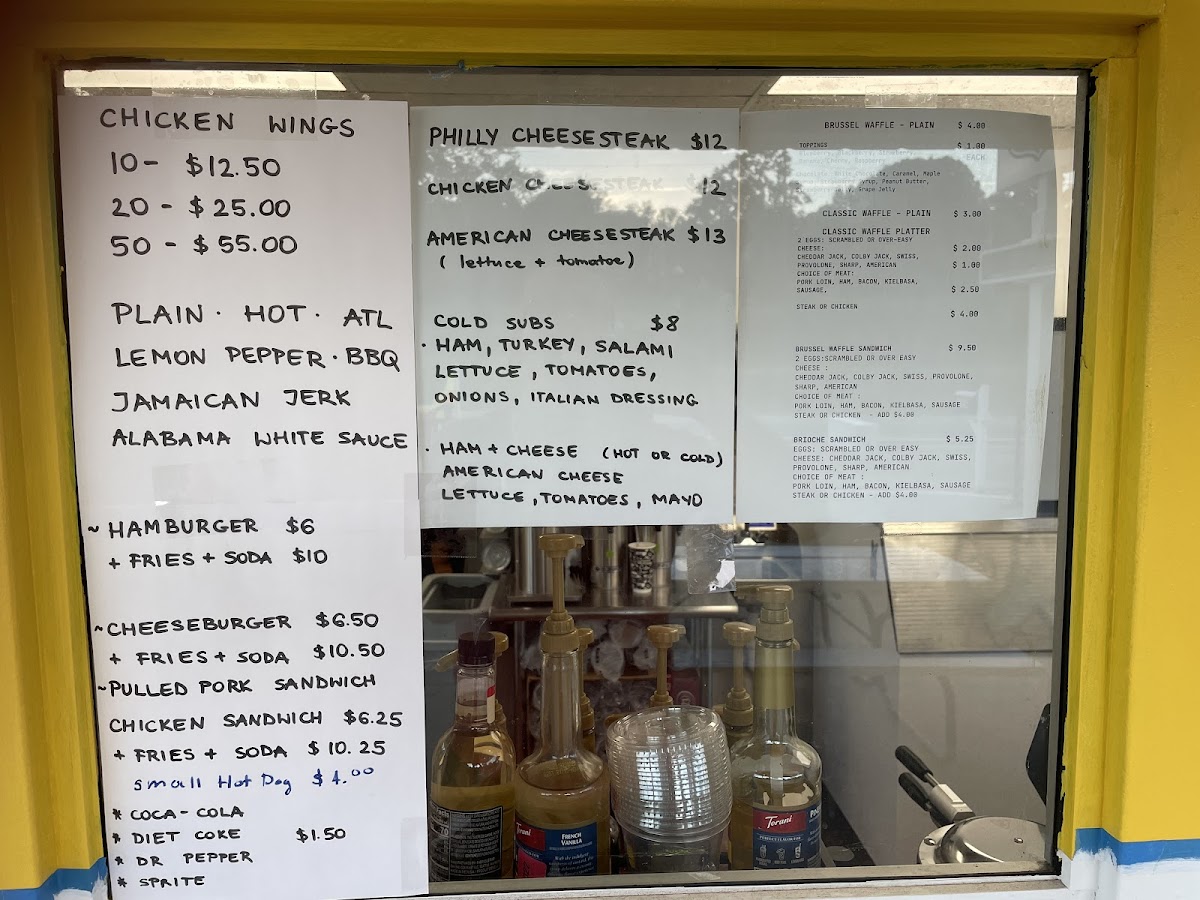 CHICKEN WINGS
10 - $12.50
20 - $25.00
50 - $55.00
PLAIN · HOT · ATL
LEMON PEPPER · BBQ
JAMAICAN JERK
ALABAMA WHITE SAUCE
~ HAMBURGER $6
+ FRIES + SODA $10
~ CHEESEBURGER $6.50
+ FRIES + SODA $10.50
~ PULLED PORK SANDWICH
CHICKEN SANDWICH $6.25
+ FRIES + SODA $10.25
small Hot Dog $4.00
* COCA-COLA
* DIET COKE $1.50
* DR PEPPER
* SPRITE
PHILLY CHEESESTEAK $12
CHICKEN CHEESESTEAK 12
AMERICAN CHEESESTEAK $13
( lettuce + tomatoe)
COLD SUBS $8
· HAM, TURKEY, SALAMI
LETTUCE, TOMATOES,
ONIONS, ITALIAN DRESSING
· HAM + CHEESE (HOT OR COLD)
AMERICAN CHEESE
LETTUCE, TOMATOES, MAYO
BRUSSEL WAFFLE - PLAIN $ 4.00
TOPPINGS $ 1.00
EACH
Caramel, Maple
Syrup, Peanut Butter,
Grape Jelly
CLASSIC WAFFLE - PLAIN $ 3.00
CLASSIC WAFFLE PLATTER
2 EGGS: SCRAMBLED OR OVER-EASY
CHEESE: $ 2.00
CHEDDAR JACK, COLBY JACK, SWISS,
PROVOLONE, SHARP, AMERICAN $ 1.00
CHOICE OF MEAT:
PORK LOIN, HAM, BACON, KIELBASA,
SAUSAGE, $ 2.50
STEAK OR CHICKEN
$ 4.00
BRUSSEL WAFFLE SANDWICH $ 9.50
2 EGGS:SCRAMBLED OR OVER EASY
CHEESE :
CHEDDAR JACK, COLBY JACK, SWISS, PROVOLONE,
SHARP, AMERICAN
CHOICE OF MEAT:
PORK LOIN, HAM, BACON, KIELBASA, SAUSAGE
STEAK OR CHICKEN - ADD $4.00
BRIOCHE SANDWICH $ 5.25
EGGS: SCRAMBLED OR OVER EASY
CHEESE: CHEDDAR JACK, COLBY JACK, SWISS,
PROVOLONE, SHARP, AMERICAN
CHOICE OF MEAT :
PORK LOIN, HAM, BACON, KIELBASA, SAUSAGE
STEAK OR CHICKEN - ADD $4.00
Torani
FRENCH
VANILLA
Torani